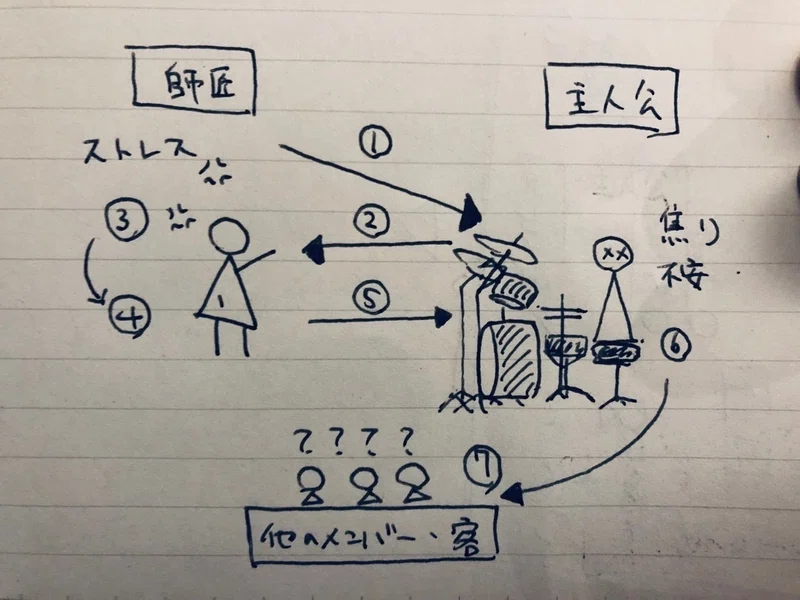 師匠
主人公
ストレス
①
②
③
④
⑤
焦り
不安
⑥
? ? ? ?
⑦
他のメンバー・客